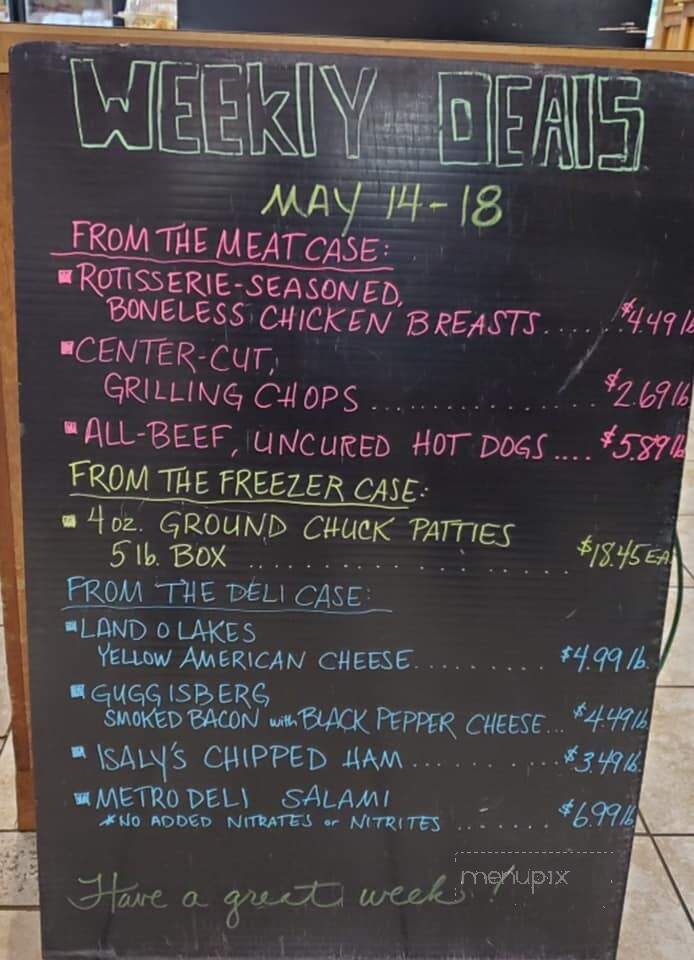 WEEKLY DEALS
MAY 14-18
FROM THE MEAT CASE:
ROTISSERIE-SEASONED,
BONELESS CHICKEN BREASTS......$4.49 lb
CENTER-CUT,
GRILLING CHOPS ................ $2.69 lb
ALL-BEEF, UNCURED HOT DOGS.... $5.89 lb
FROM THE FREEZER CASE:
4 oz. GROUND CHUCK PATTIES
5 lb. BOX .................... $18.45 EA.
FROM THE DELI CASE:
LAND O LAKES
YELLOW AMERICAN CHEESE.......... $4.99 lb.
GUGGISBERG
SMOKED BACON with BLACK PEPPER CHEESE... $4.49 lb
ISALY'S CHIPPED HAM............ $3.49 lb.
METRO DELI SALAMI
*NO ADDED NITRATES or NITRITES ....... $6.99 lb
Have a great week!
menupix